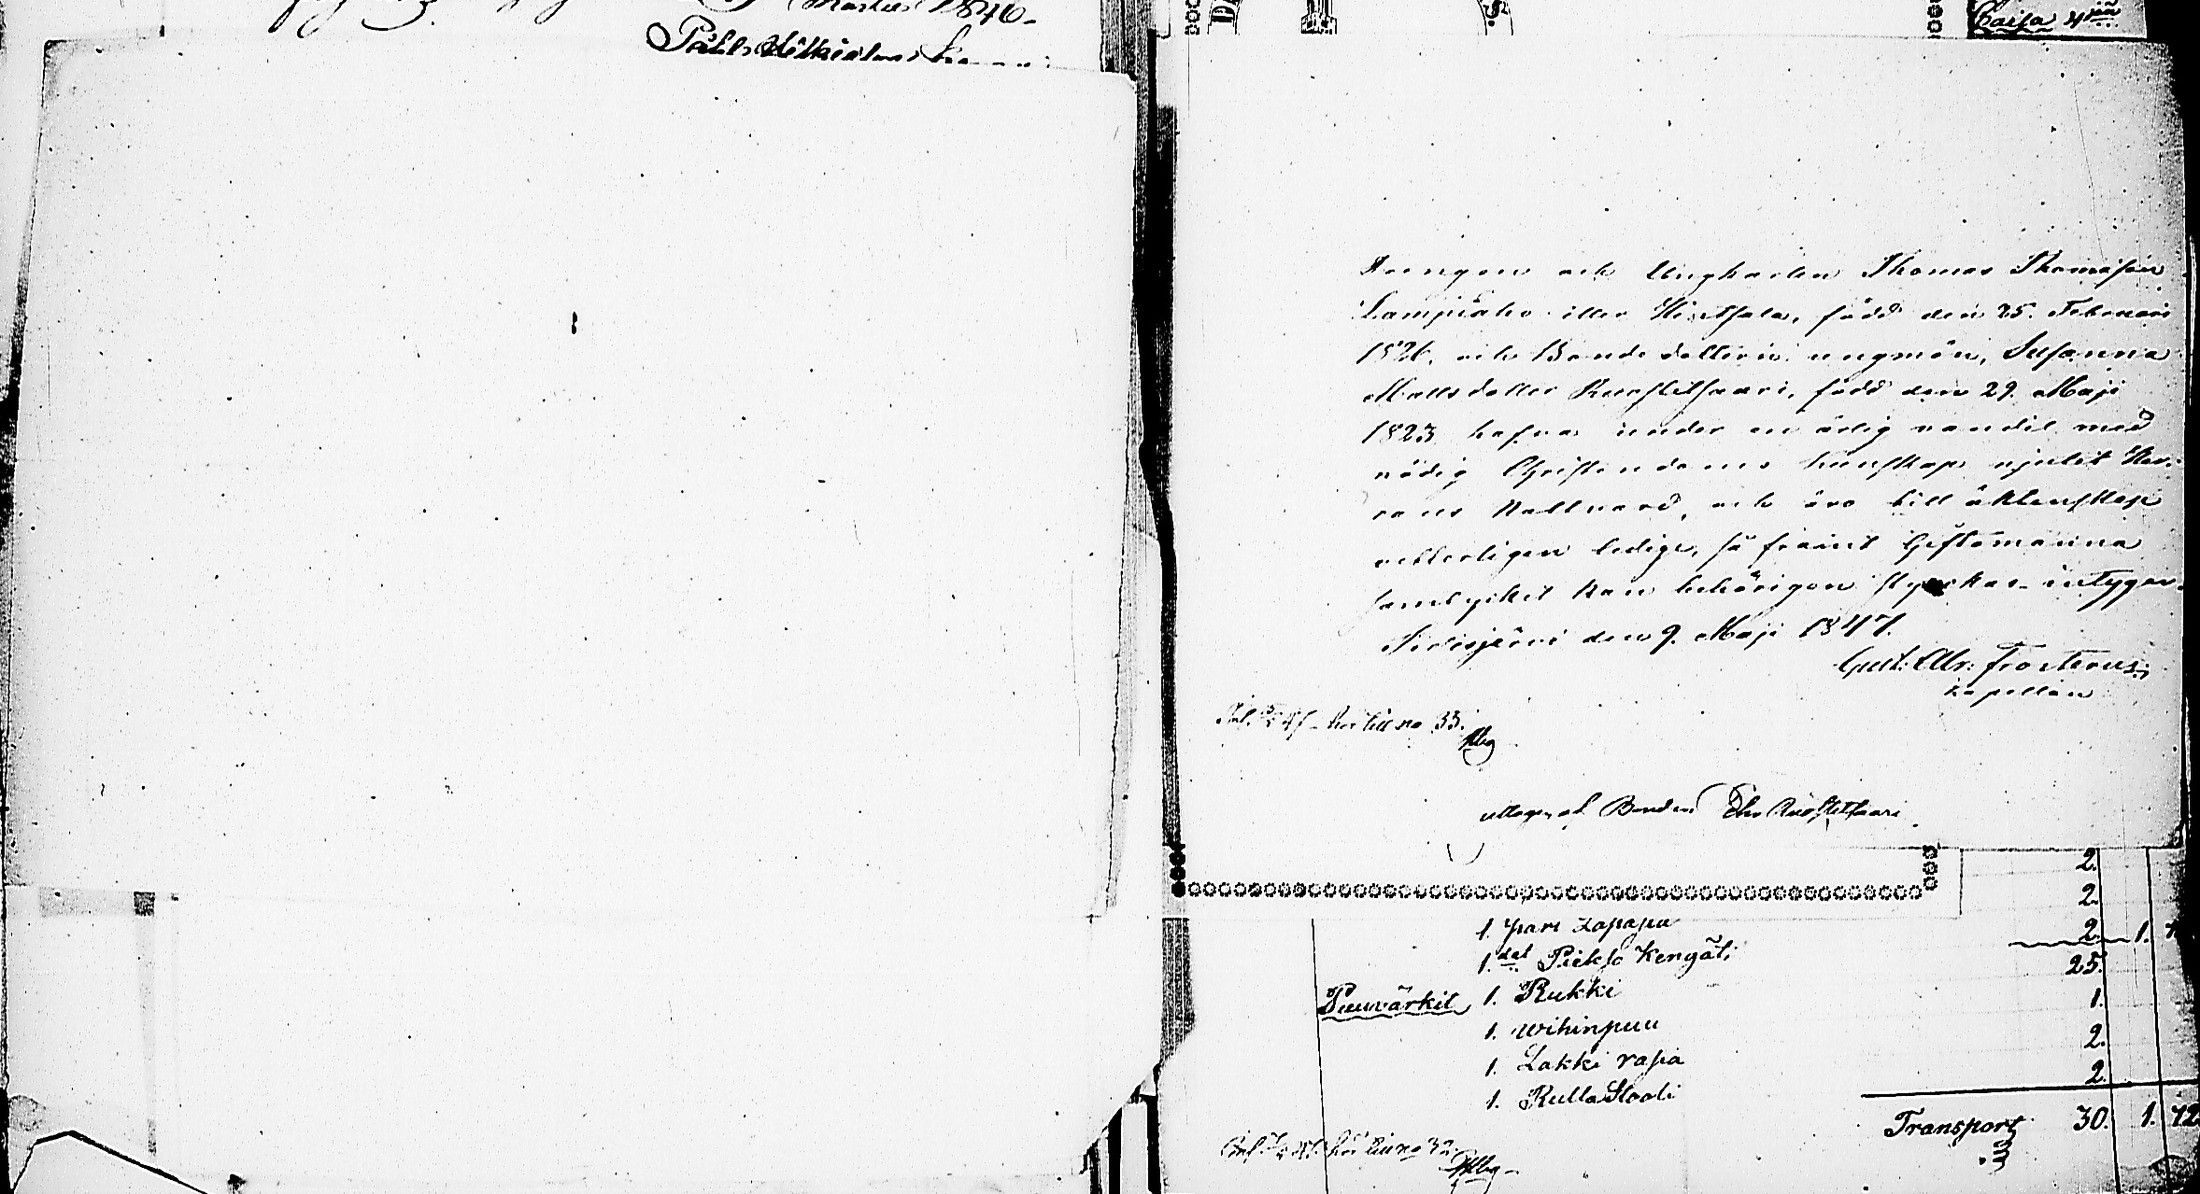 Martius 1846.
Caisa
Drängen och Ungkarlen Thomas Thomasson
Lampiaho eller Hirssala, född den 25. Februari
1826, och Bondedottern ungmön, Susanna
Mattsdotter Ruostetsaari, född den 29. Maji
1823 hafva under en ärlig vandel med
nödig Christendoms kunskap njutit Her-
rans Nattvard, och äro till äktenskap
veterligen ledige, så framt Giftomanna
samtycket kan behörigen styrkas. intygar.
Nivajärvi den 9. Maji 1847.
Gust: Abr: Frosterus,
kapellan
hör till no 33.
uttages af Bonden Ruostetsaari
2.
2.
1. pari Lapasia 2. 1.
1. det Pieksö Kengäti 25.
Puuvärkit 1. Rukki 1.
1. Wihinpuu 2.
1. Lakki rasia 2.
1. Rulla Stooli
Transport 30. 1. 72
hör till no